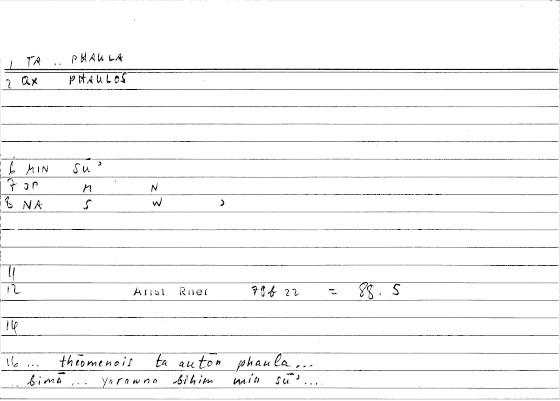 1 TA .. PHAULA
2 QX PHAULOS
6 MIN SŪ'
7 JP M N
8 NA S W '
11
12 Arist Rhet 79b 22 = 88.5
14
16 ... theōmenois ta autōn phaula ...
.. bimā ... yarawna bihim min sū' ....